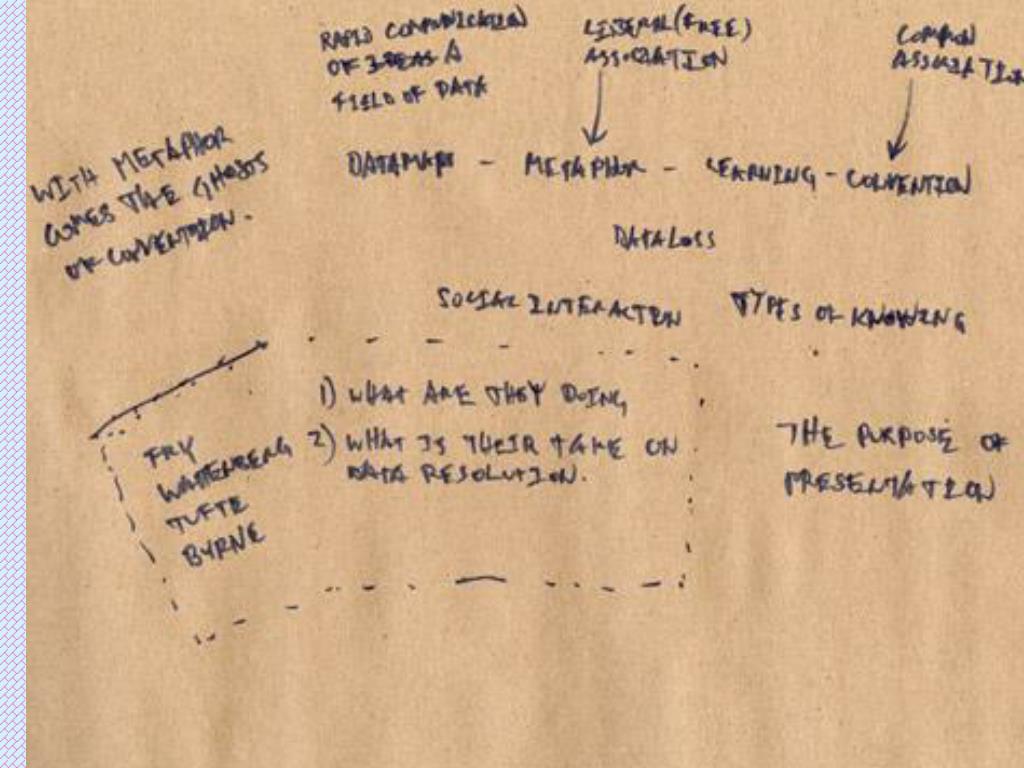 RAPID COMMUNICATION
OF IDEAS A
FIELD OF DATA
(FREE)
ASSOCIATION
COMMON
ASSOCIATION
WITH METAPHOR
COMES THE GHOSTS
OF CONVENTION.
DATAMAP - METAPHOR - LEARNING - CONVENTION
DATA LOSS
SOCIAL INTERACTION
TYPES OF KNOWING
1) WHAT ARE THEY DOING
2) WHAT IS THEIR TAKE ON
DATA RESOLUTION.
FRY
WATTENBERG
TUFTE
BYRNE
THE PURPOSE OF
PRESENTATION